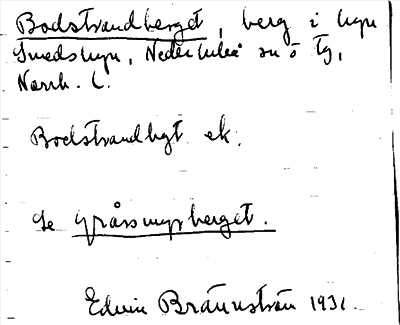 Bodstrandberget, berg i byn
Smedsbyn, Nederluleå sn o tg,
Norrb. l.
Bodstrandbgt ek.
Se Gråssmyrberget.
Edvin Brännström 1931.